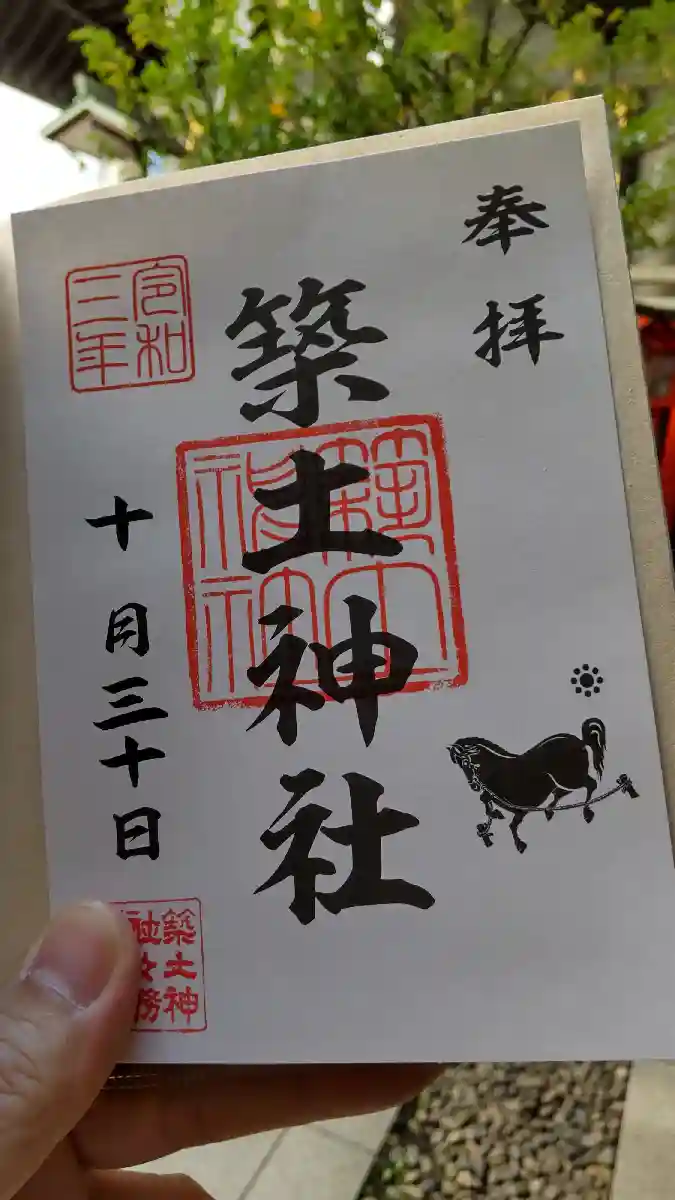 奉拝
築土神社
築土神社
令和三年
十月三十日
築土神社社務